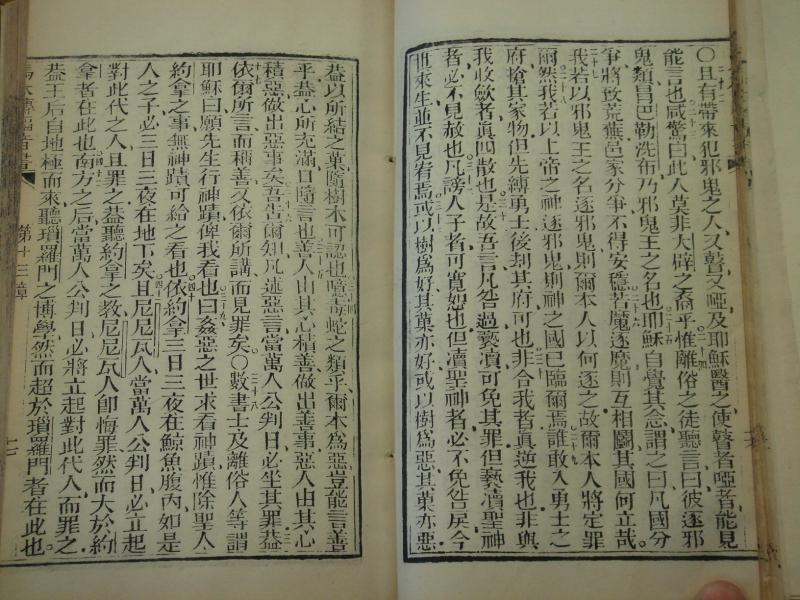 〇且有帶來犯邪鬼之人又瞽又啞及耶穌醫之使瞽者啞者能見
能言也咸驚曰此人莫非大辟之裔乎惟離俗之徒聽言曰彼逐邪
鬼類皆巴勒洗布乃邪鬼王之名也耶穌自覺其念謂之曰凡國分
爭將致荒蕪邑家分爭不得安穩若魔逐魔則互相鬭其國何立哉
我若以邪鬼王之名逐邪鬼則爾本人以何逐之故爾本人將定罪
爾然我若以上帝之神逐邪鬼則神之國已臨爾焉誰敢入勇士之
府搶其家物但先縛勇士後刼其府可也非合我者眞逆我也非與
我收歛者眞四散也是故吾言凡咎過褻瀆可免其罪但褻瀆聖神
者必不見赦也凡謗人子者可寬恕也但瀆聖神者必不免咎戾今
世來生並不見宥焉或以樹爲好其菓亦好或以樹爲惡其菓亦惡
葢以所結之菓隨樹木可認也噫毒蛇之類乎爾本爲惡豈能言善
乎葢心所充滿口隨言也善人由其心積善做出善事惡人由其心
積惡做出惡事矣吾告爾知凡述惡言當萬人公判日必坐其罪葢
依爾所言而稱善又依爾所講而見罪矣〇數書士及離俗人等謂
耶穌曰願先生行神蹟俾我看也曰姦惡之世求看神蹟惟除聖人
約拿之事無神蹟可給之看也依約拿三日三夜在鯨魚腹內如是
人之子必三日三夜在地下矣且尼尼瓦人當萬人公判日必立起
對此代之人且罪之葢聽約拿之敎尼尼瓦人卽悔罪然而大於約
拿者在此也南方之后當萬人公判日必將立起對此代人而罪之
葢王后自地極而來聽瑣羅門之博學然而超於瑣羅門者在此也
第十三章